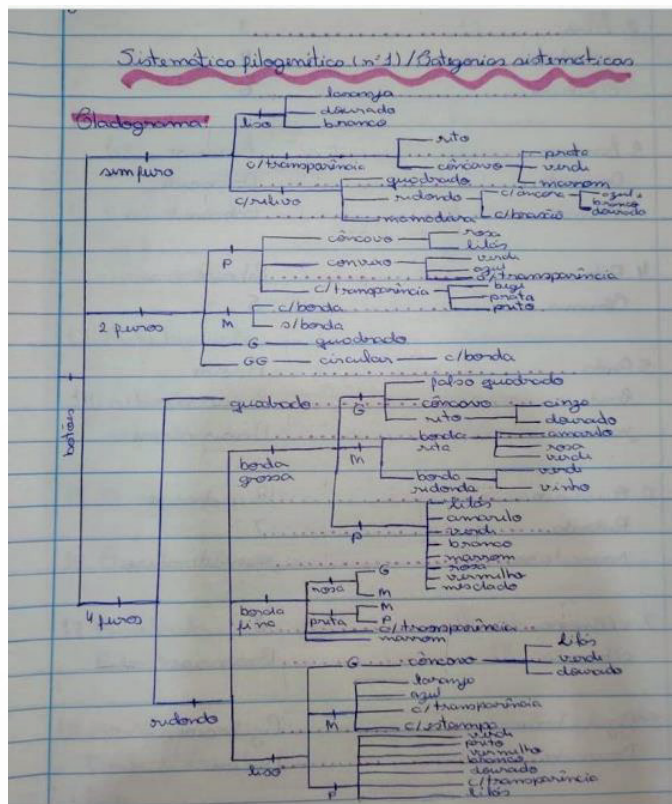 Sistemática filogenética (nº1)/Categorias sistemáticas
Cladograma:
botões
sem furo
liso
laranja
dourado
branco
c/transparência
reto
côncavo
prata
verde
marrom
c/relevo
quadrado
redondo
c/âncora
azul
branco
dourado
c/brasão
2 furos
P
côncavo
rosa
lilás
convexo
verde
azul
c/transparência
c/transparência
bege
prata
preto
M
c/borda
s/borda
G
quadrado
GG
circular
c/borda
4 furos
quadrado
redondo
borda
grossa
G
falso quadrado
côncavo
reto
cinza
dourado
M
borda
reta
amarelo
rosa
verde
borda
redonda
verde
vinho
P
lilás
amarelo
verde
branco
marrom
rosa
vermelho
mesclado
borda
fina
rosa
G
M
preta
M
P
c/transparência
marrom
liso
G
côncavo
lilás
verde
dourado
M
laranja
azul
c/transparência
c/estampa
P
verde
preto
vermelho
branco
dourado
c/transparência
lilás